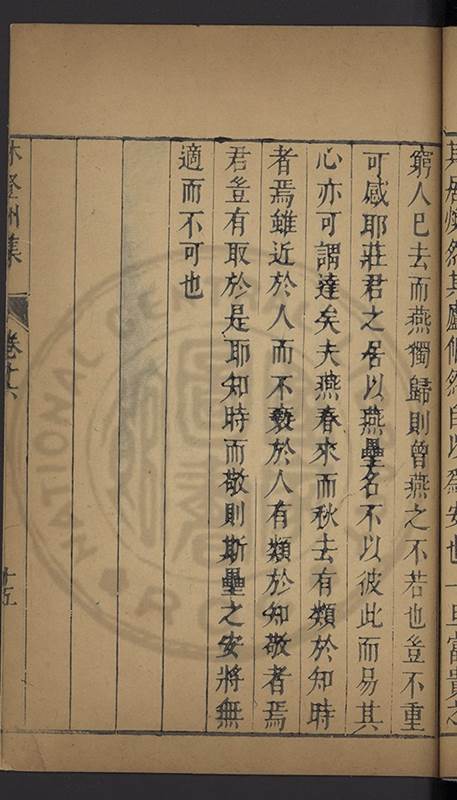 其居燠然其廬翛然自以為安也一旦富貴之
窮人已去而燕獨歸則曾燕之不若也豈不重
可感耶莊君之居以燕壘名不以彼此而易其
心亦可謂達矣夫燕春來而秋去有類於知時
者焉雖近於人而不褻於人有類於知敬者焉
君豈有取於是耶知時而敬則斯壘之安將無
適而不可也
林登州集
卷十六
十五